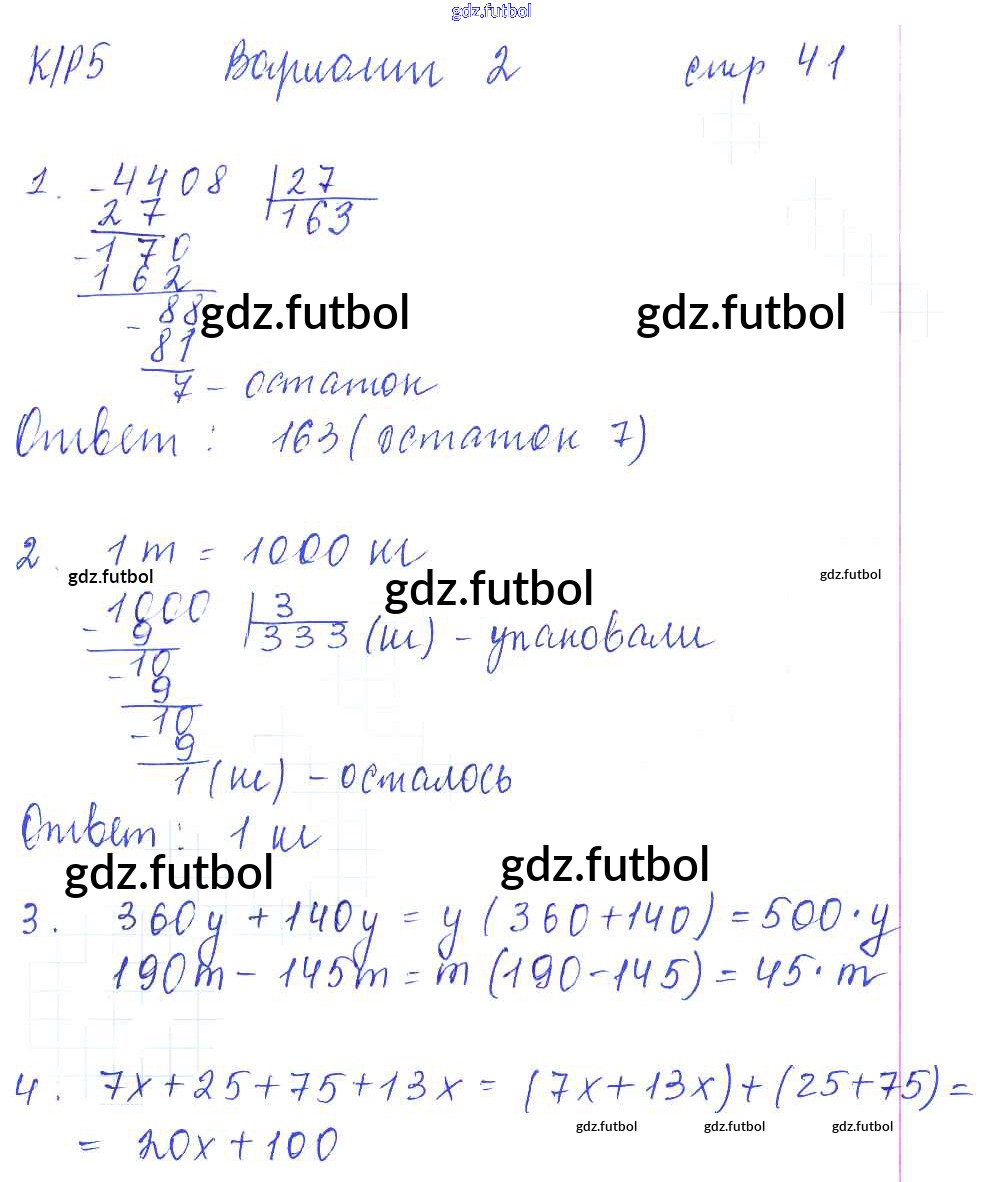 gdz.futbol
К/Р5 Вариант 2 стр 41
1. -4408 |27
27 163
-170
162
88 gdz.futbol gdz.futbol
-
81
7 - остаток
Ответ: 163 (остаток 7)
2. 1т = 1000 кг
gdz.futbol gdz.futbol gdz.futbol
1000 |3
-9 333 (кг) - упаковали
-10
9
-10
9
1 (кг) - осталось
Ответ: 1 кг
gdz.futbol gdz.futbol
3. 360y + 140y = y (360+140) = 500·y
190m - 145m = m (190-145) = 45·m
4. 7x+25+75+13x = (7x+13x)+(25+75) =
= 20x+100
gdz.futbol gdz.futbol gdz.futbol